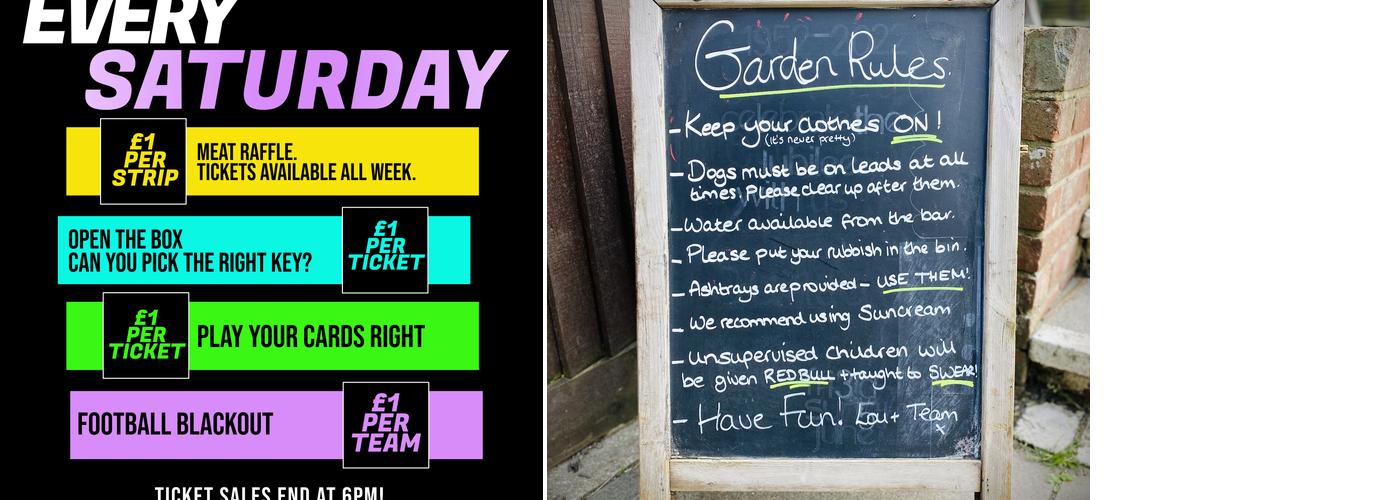 EVERY
SATURDAY
£1
PER
STRIP
MEAT RAFFLE.
TICKETS AVAILABLE ALL WEEK.
OPEN THE BOX
CAN YOU PICK THE RIGHT KEY?
£1
PER
TICKET
£1
PER
TICKET
PLAY YOUR CARDS RIGHT
FOOTBALL BLACKOUT
£1
PER
TEAM
TICKET SALES END AT 6PM!
Garden Rules.
- Keep your clothes ON!
(it's never pretty)
- Dogs must be on leads at all
times. Please clear up after them.
- Water available from the bar.
- Please put your rubbish in the bin.
- Ashtrays are provided - USE THEM!
- We recommend using Suncream
- Unsupervised Children will
be given REDBULL + taught to SWEAR!
- Have Fun! Lou + Team
x